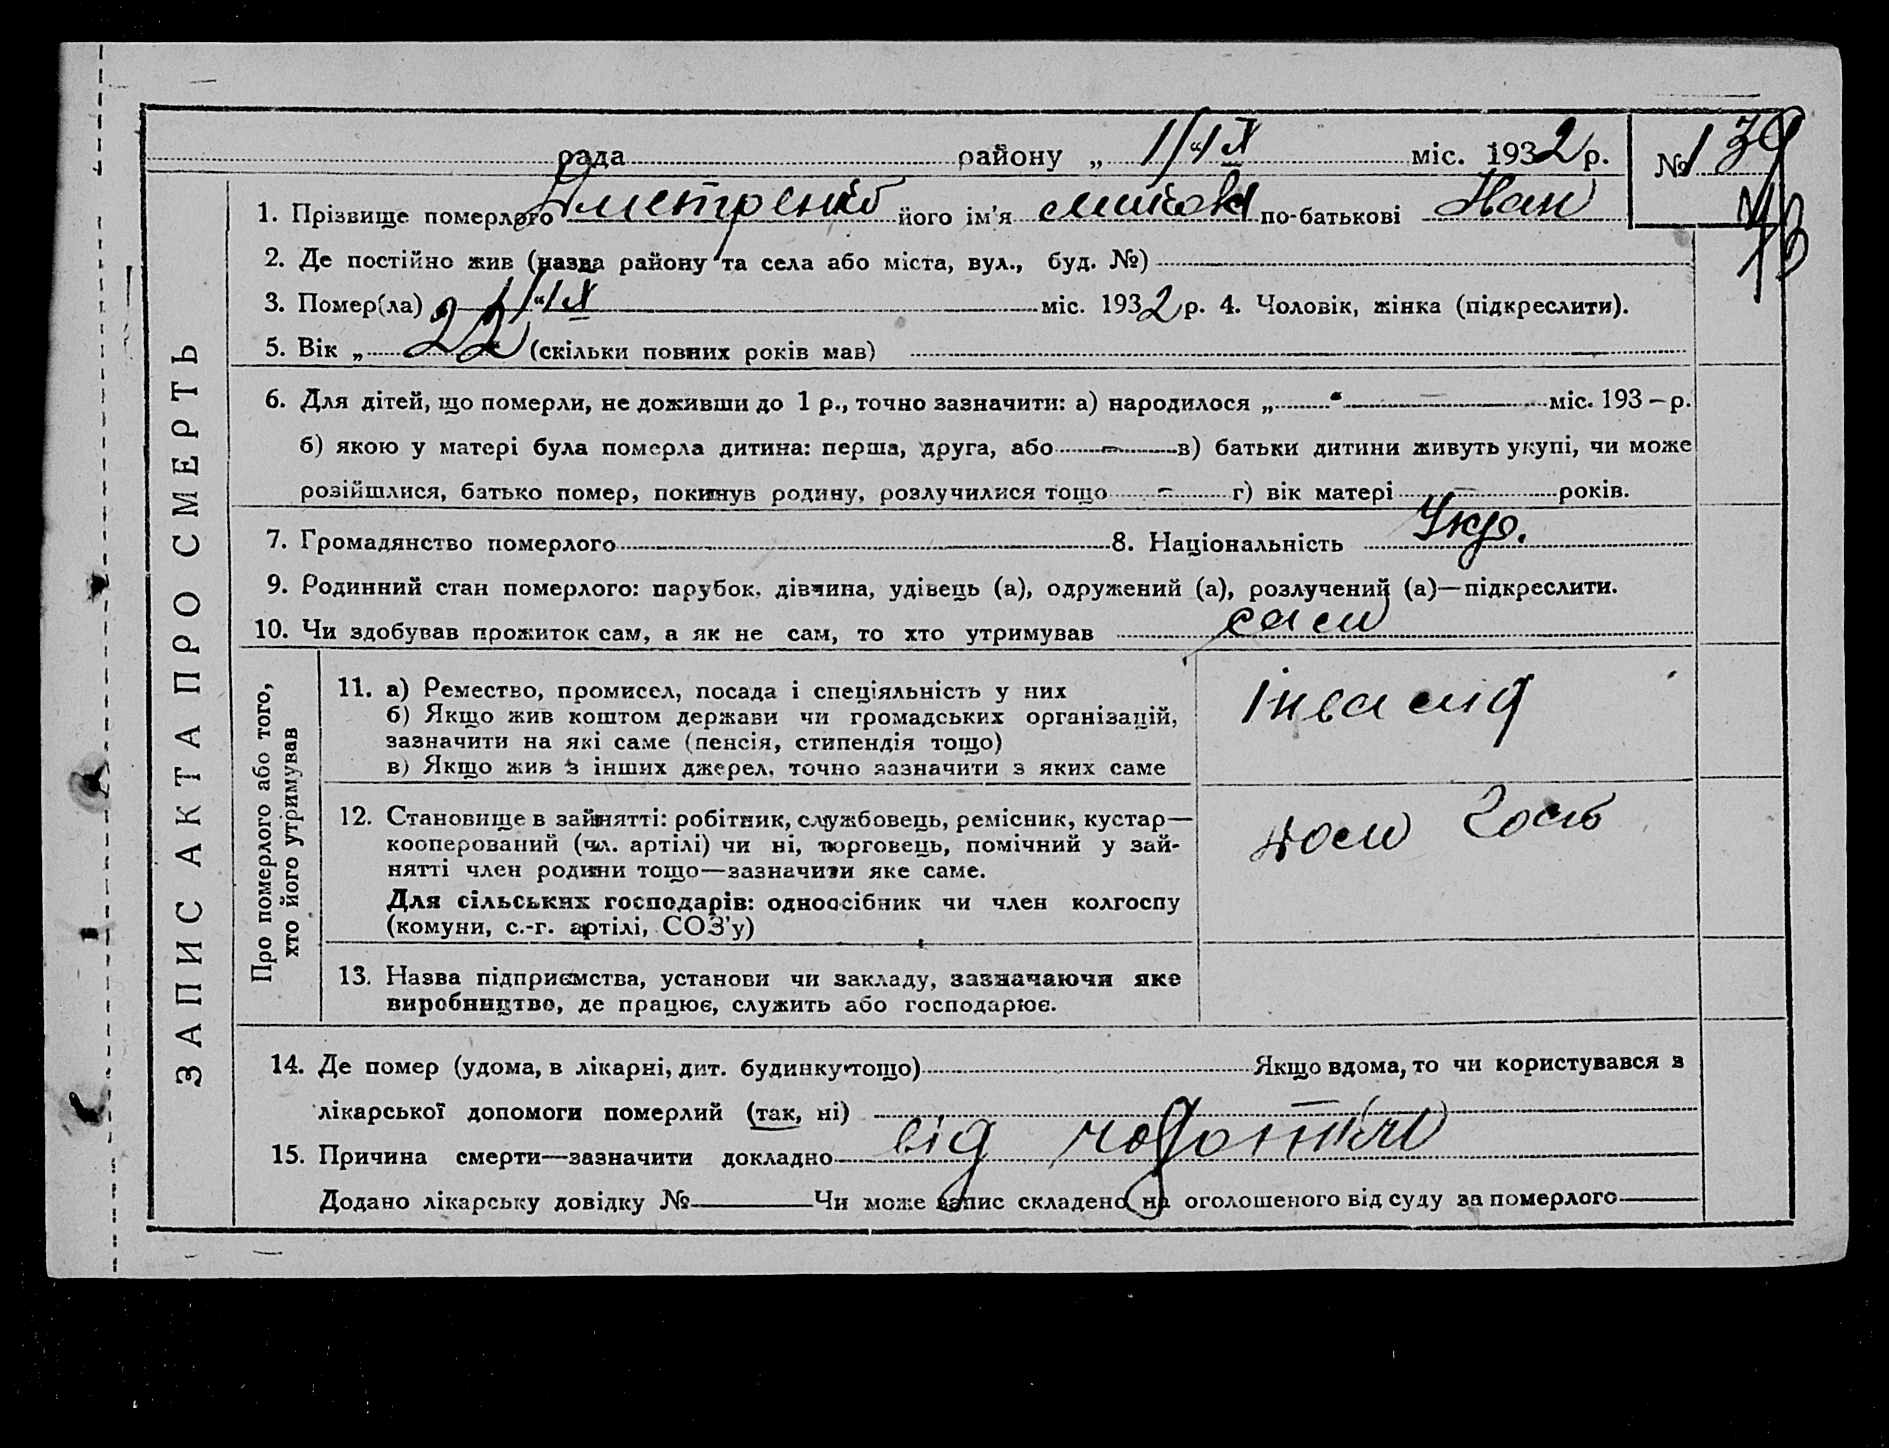 рада району „ 1/IX міс. 1932 р. № 139
73
1. Прізвище померлого Дмитренко його ім'я по-батькові Йван
2. Де постійно жив (назва району та села або міста, вул., буд. №)
3. Помер(ла) 1/IX міс. 1932 р. 4. Чоловік, жінка (підкреслити).
5. Вік „ 22 (скільки повних років мав)
6. Для дітей, що померли, не доживши до 1 р., точно зазначити: а) народилося „ “ — міс. 193 – р.
б) якою у матері була померла дитина: перша, друга, або — в) батьки дитини живуть укупі, чи може
розійшлися, батько помер, покинув родину, розлучилися тощо – г) вік матері – років.
7. Громадянство померлого 8. Національність Укр.
9. Родинний стан померлого: парубок, дівчина, удівець (а), одружений (а), розлучений (а)—підкреслити.
10. Чи здобував прожиток сам, а як не сам, то хто утримував сам
ЗАПИС АКТА ПРО СМЕРТЬ
Про померлого або того,
хто його утримував
11. а) Ремество, промисел, посада і спеціяльність у них
б) Якщо жив коштом держави чи громадських організацій,
зазначити на які саме (пенсія, стипендія тощо)
в) Якщо жив з інших джерел, точно зазначити з яких саме
інвалід
12. Становище в зайнятті: робітник, службовець, ремісник, кустар—
кооперований (чл. артілі) чи ні, торговець, помічний у зай-
нятті член родини тощо—зазначити яке саме.
Для сільських господарів: одноосібник чи член колгоспу
(комуни, с.-г. артілі, СОЗ'у)
13. Назва підприємства, установи чи закладу, зазначаючи яке
виробництво, де працює, служить або господарює.
14. Де помер (удома, в лікарні, дит. будинку тощо) Якщо вдома, то чи користувався з
лікарської допомоги померлий (так, ні) —
15. Причина смерти—зазначити докладно від
Додано лікарську довідку № Чи може запис складено на оголошеного від суду за померлого